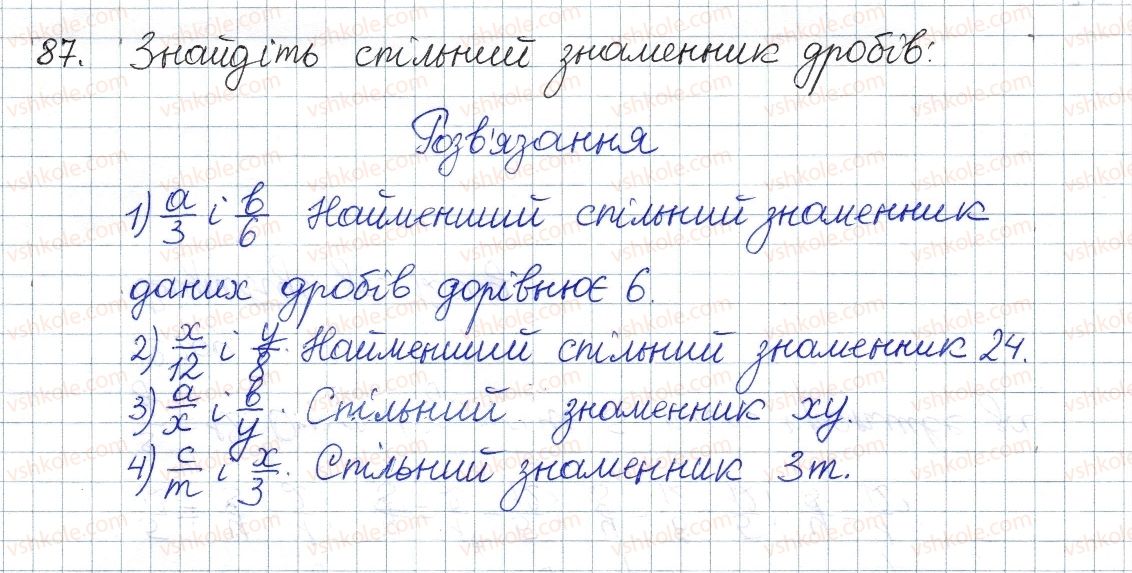 87. Знайдіть спільний знаменник дробів:
Розв'язання
1) a/3 і b/6 Найменший спільний знаменник
даних дробів дорівнює 6.
2) x/12 і y/8. Найменший спільний знаменник 24.
3) a/x і b/y. Спільний знаменник xy.
4) c/m і x/3. Спільний знаменник 3m.